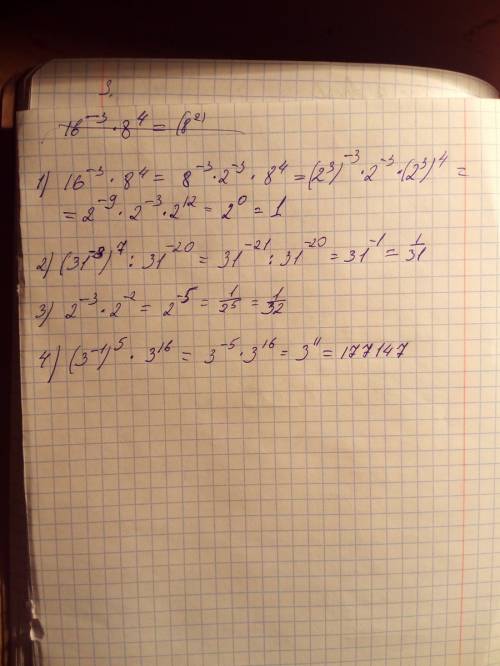 3.
16⁻³ · 8⁴ = (8²)
1) 16⁻³ · 8⁴ = 8⁻³ · 2⁻³ · 8⁴ = (2³)⁻³ · 2⁻³ · (2³)⁴ =
= 2⁻⁹ · 2⁻³ · 2¹² = 2⁰ = 1
2) (31⁻³)⁷ : 31⁻²⁰ = 31⁻²¹ : 31⁻²⁰ = 31⁻¹ = 1/31
3) 2⁻³ · 2⁻² = 2⁻⁵ = 1/2⁵ = 1/32
4) (3⁻¹)⁵ · 3¹⁶ = 3⁻⁵ · 3¹⁶ = 3¹¹ = 177147